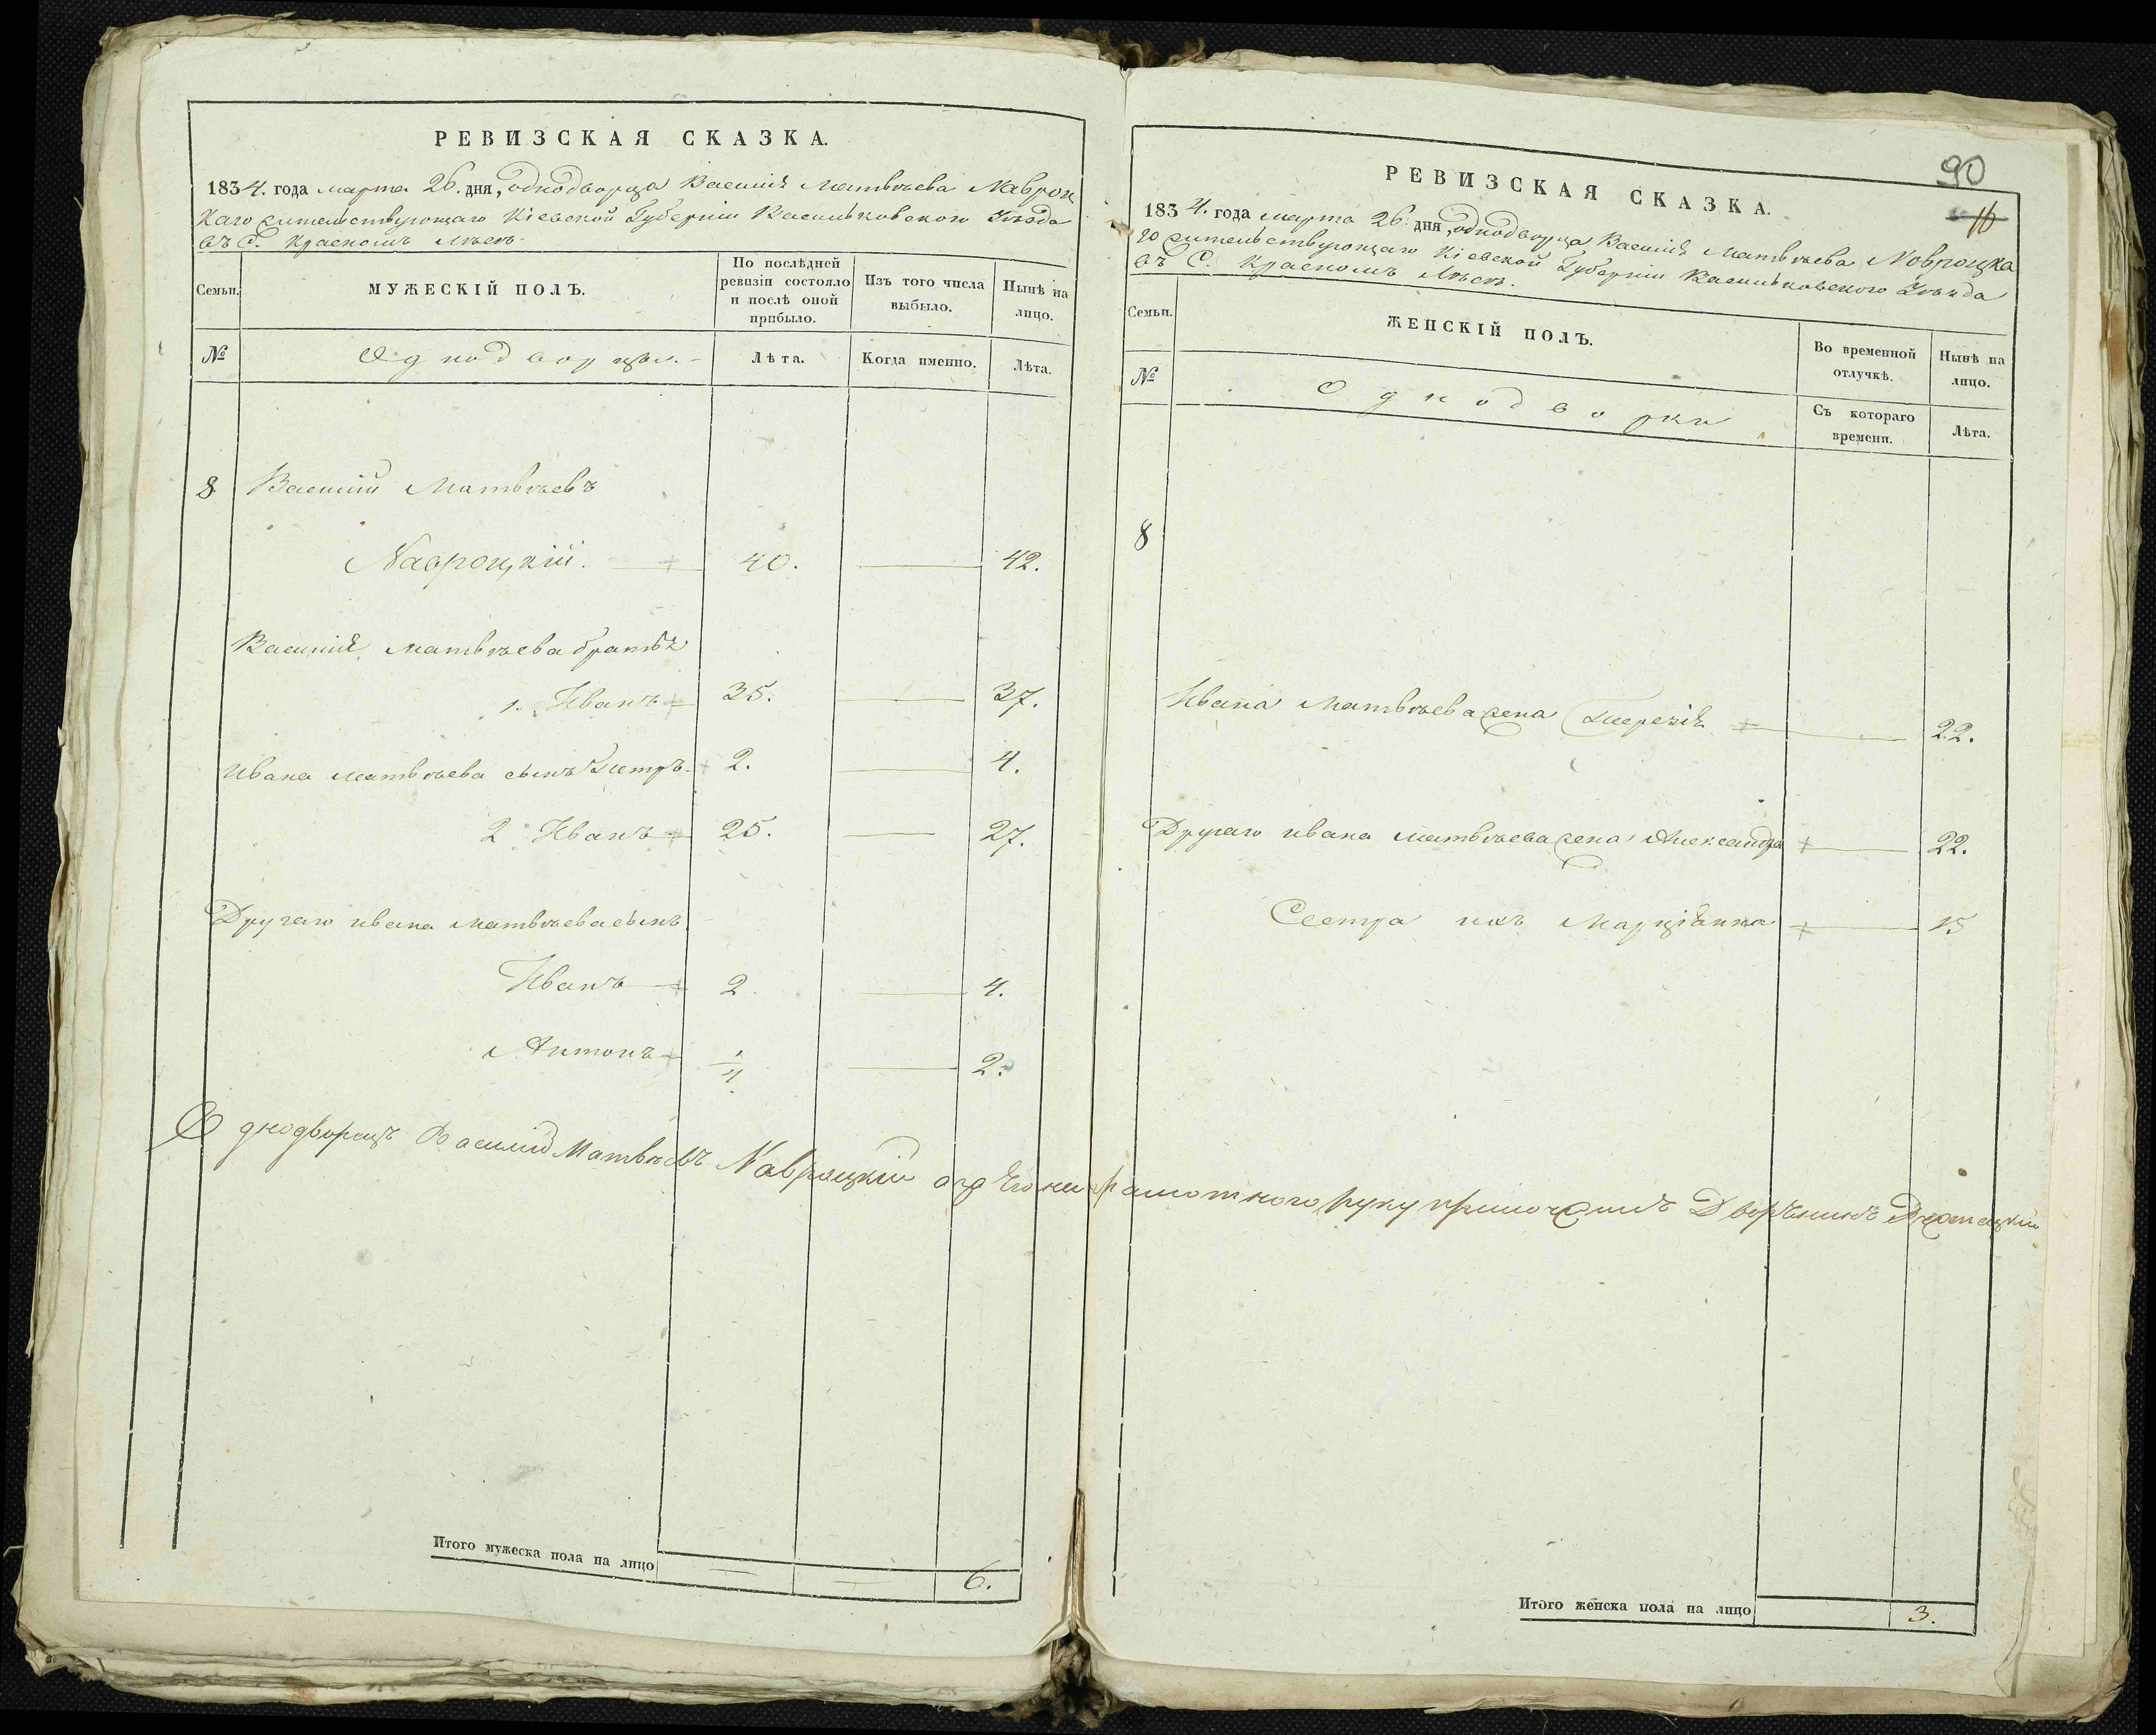 РЕВИЗСКАЯ СКАЗКА.
1834. года марта 26. дня, однодворца Василія Матвѣева Навроц
каго жительствующаго Кіевской Губерніи Васильковского Уѣзда
въ С. Красномъ Лѣсѣ.
Семьи.
МУЖЕСКІЙ ПОЛЪ.
По послѣдней
ревизіи состояло
и послѣ оной
прибыло.
Изъ того числа
выбыло.
Нынѣ на
лицо.
№
Однодворцы.
Лѣта.
Когда именно.
Лѣта.
8. Василій Матвѣевъ
Навроцкій. 40. 42.
Василія Матвѣева братья
1. Иванъ 35. 37.
Ивана Матвѣева сынъ Петръ 2. 4.
2. Иванъ 25. 27.
Другаго ивана Матвѣева сынъ
Иванъ 2. 4.
Антонъ 1/4 2.
Однодворецъ Василій Матвѣевъ Навроцкій а за Его неграмотного руку приложилъ Дворѣнинъ
Итого мужеска пола на лицо 6.
90
16
РЕВИЗСКАЯ СКАЗКА.
1834. года марта 26. дня, однодворца Василія Матвѣева Новроцка
го жительствующаго Кіевской Губерніи Васильковского Уѣзда
въ С. Красномъ Лѣсѣ.
Семьи.
ЖЕНСКІЙ ПОЛЪ.
Во временной
отлучкѣ.
Нынѣ на
лицо.
№
Однодворки
Съ котораго
времени.
Лѣта.
8
Ивана Матвѣева жена Терезія 22.
Другаго ивана Матвѣева жена Александра 22.
Сестра ихъ Марціанна 15
Итого женска пола на лицо 3.